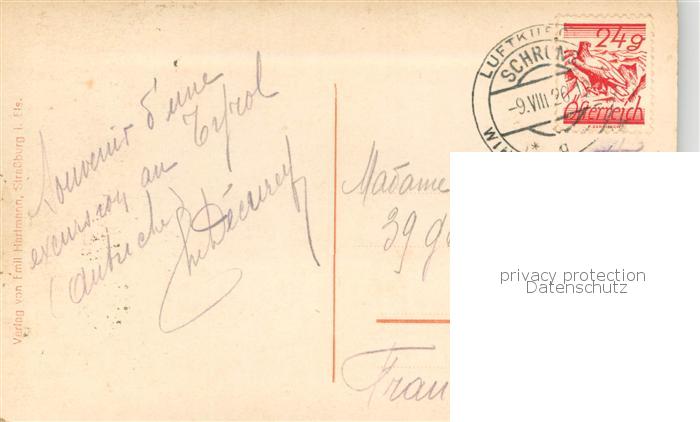 Souvenir d'une
excursion au Tyrol
(autriche)
Verlag von Emil Hartmann, Straßburg i. Els.
LUFTKU
SCHRUN
-9.VIII 26
24g
Österreich
Madame
39
Fran
privacy protection
Datenschutz